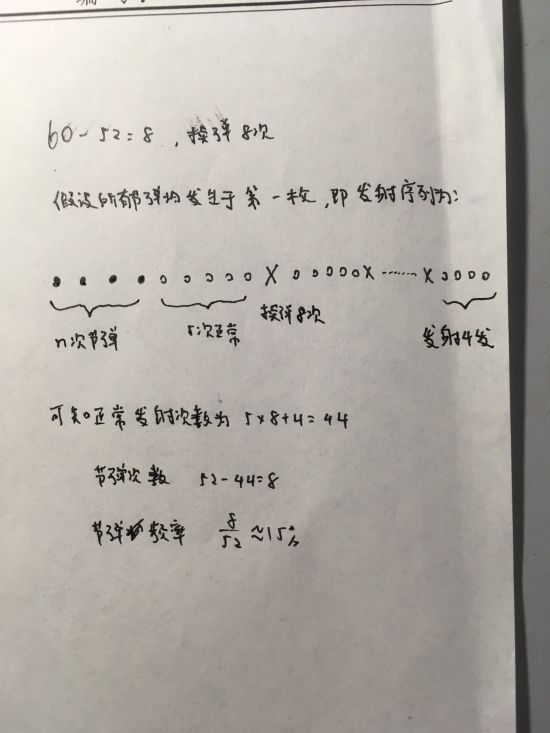 60-52=8，换弹8次
假设所有节弹均发生于第一枚，即发射序列为：
● ● ● ● ○ ○ ○ ○ ○ X ○ ○ ○ ○ ○ X ······ X ○ ○ ○ ○
n次节弹 5次正常 换弹8次 发射4发
可知正常发射次数为 5×8+4=44
节弹次数 52-44=8
节弹频率 8/52≈15%